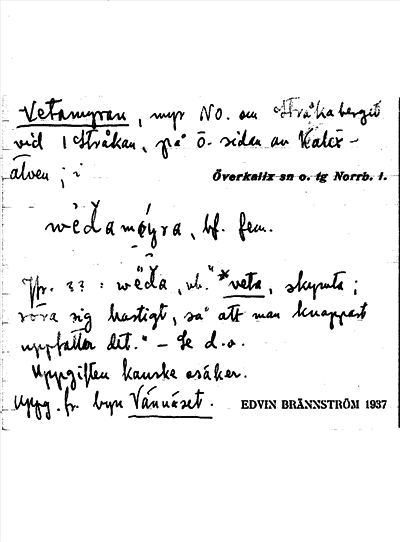 Vetamyran, myr NO. om Stråkaberget
vid Stråkan, på ö. sidan av Kalix-
älven; i
Överkalix sn o. tg Norrb. l.
wèdamǿyra, bf. fem.
Jfr. : wëda, vb. "*veta, skymta;
röra sig hastigt, så att man knappast
uppfattar det." – Se d.o.
Uppgiften kanske osäker.
Uppg. fr. byn Vännäset.
EDVIN BRÄNNSTRÖM 1937